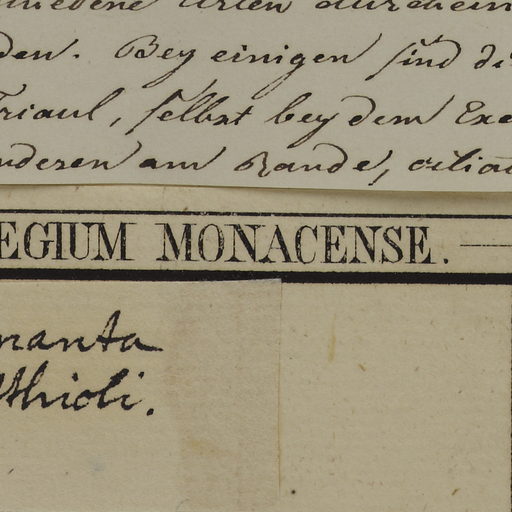 den. Bey einigen sind di
Friaul, selbst bey dem Exe
nderen am Rande, ciliat
EGIUM MONACENSE.
nanta
thioli.